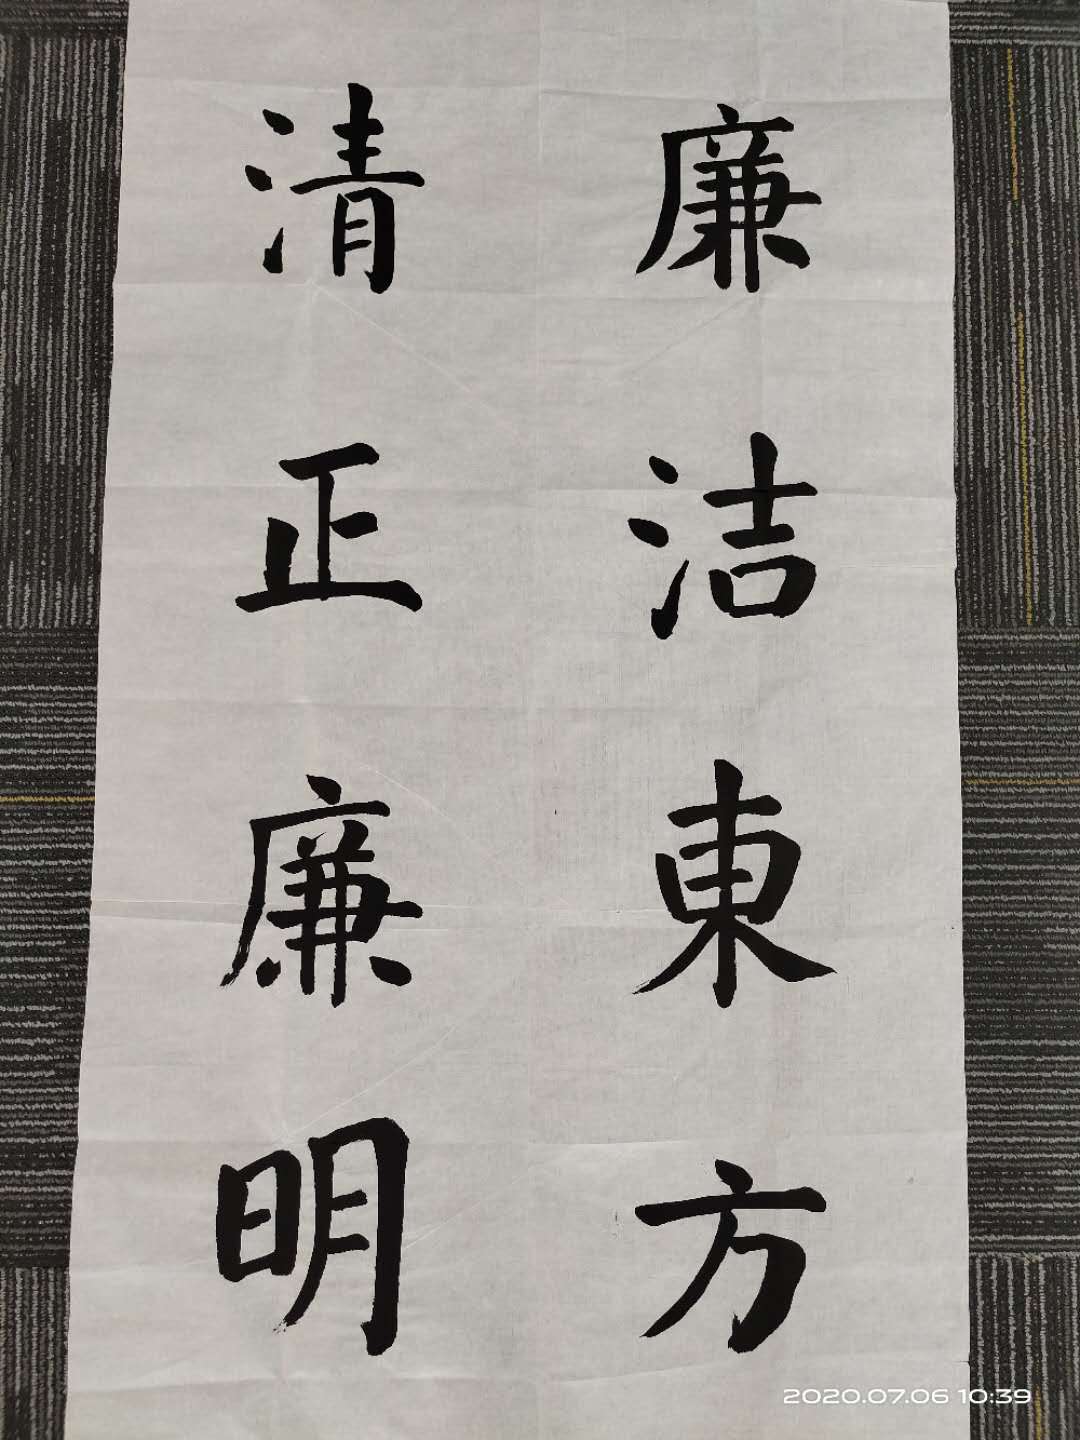 廉洁東方
清正廉明
2020.07.06 10:39